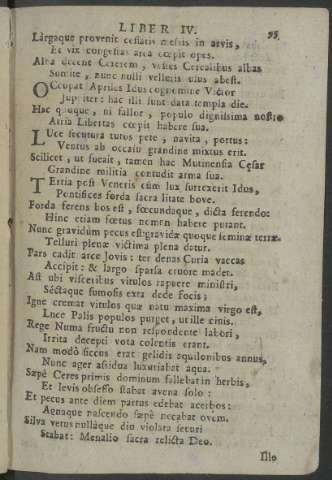 LIBER IV.
95
Largaque provenit cessatis messis in arvis,
Et vix congestas area cœpit opes.
Alba decent Cererem, vestes Cerealibus albas
Sumite, nunc nulli velleris usus abest.
Occupat Apriles Idus cognomine Victor
Jupiter: hac illi sunt data templa die.
Hac quoque, ni fallor, populo dignissima nostro
Atria Libertas cœpit habere sua.
Luce secutura tutos pete, navita, portus:
Ventus ab occasu grandine mixtus erit.
Scilicet, ut fueait, tamen hac Mutinensia Cęsar
Grandine militia contudit arma sua.
Tertia post Veneris cùm lux surrexerit Idus,
Pontifices forda sacra litate bove.
Forda ferens bos est, fœcundaque, dicta ferendo:
Hinc etiam fœtus nomen habere putant.
Nunc gravidum pecus est: gravidæ quoque semina terræ.
Telluri plenæ victima plena datur.
Pars cadit arce Jovis: ter denas Curia vaccas
Accipit: & largo sparsa cruore madet.
Ast ubi visceribus vitulos rapuere ministri,
Sectaque fumosis exta dede focis;
Igne cremat vitulos quæ natu maxima virgo est,
Luce Palis populos purget, ut ille cinis.
Rege Numa fructu non respondente labori,
Irrita decepti vota colentis erant.
Nam modò siccus erat gelidis aquilonibus annus,
Nunc ager assidua luxuriabat aqua.
Sæpè Ceres primis dominum fallebat in herbis,
Et levis obsesso stabat avena solo:
Et pecus ante diem partus edebat acerbos:
Agnaque nascendo sæpè necabat ovem.
Silva vetus nullaque diu violata securi
Stabat: Menalio sacra relicta Deo.
Illo